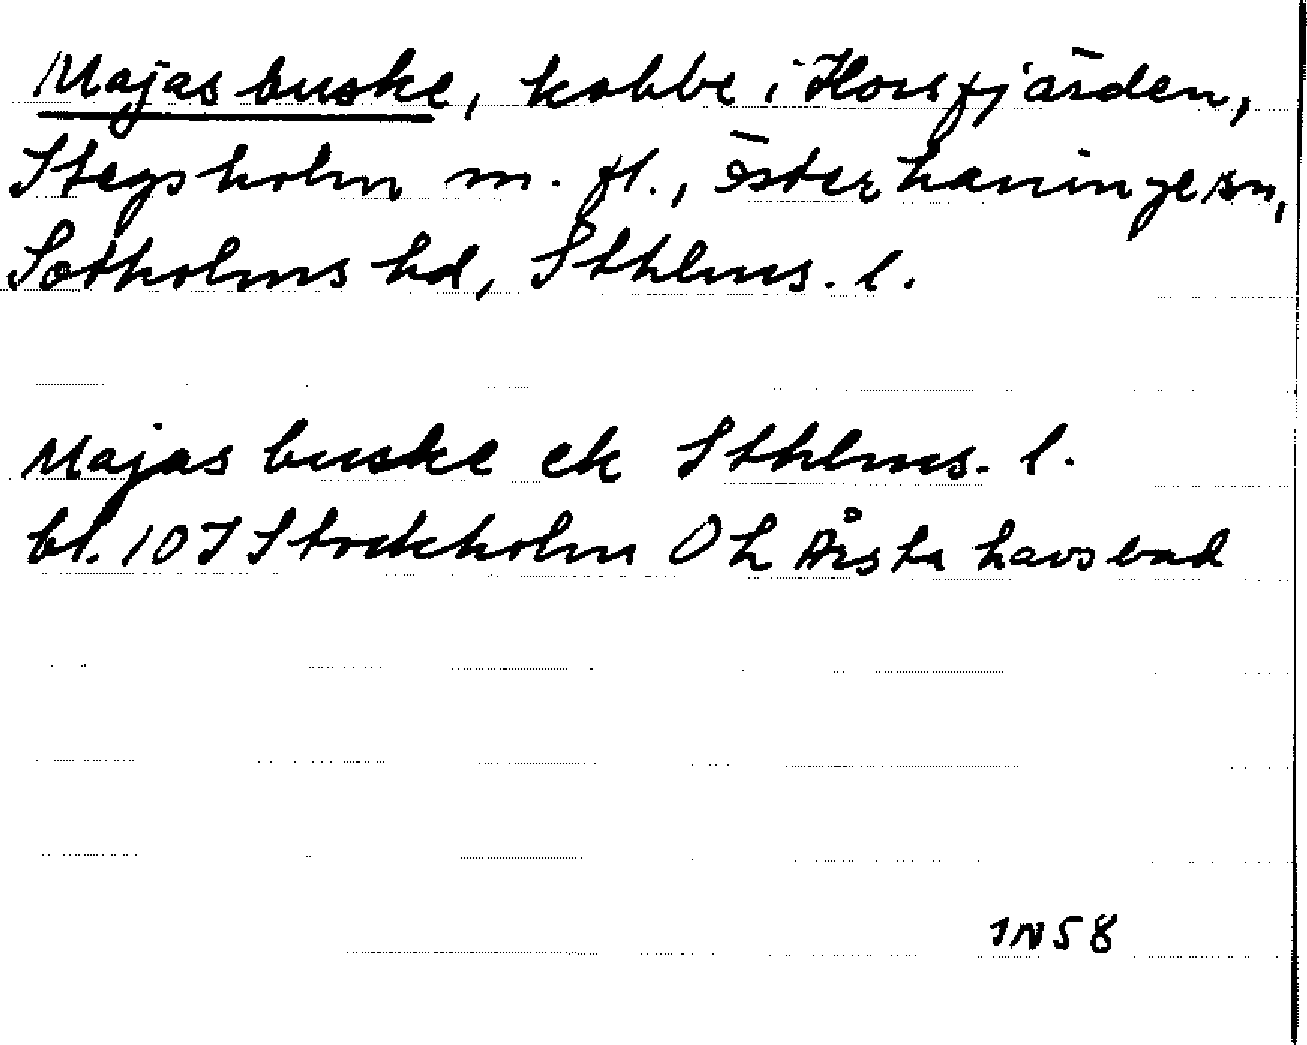 Majas buske, kobbe i Horsfjärden,
Stegsholm m. fl., Österhaninge sn,
Sotholms hd, Sthlms. l.
Majas buske ek Sthlms. l.
bl. 107 Stockholm OL Årsta havsbad
IN 58